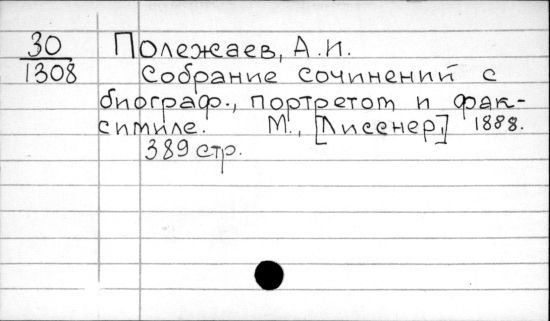 30
1308
Полежаев, А.И.
Собрание сочинений с
биограф., портретом и фак-
симиле. М., [Лиссенер,] 1888.
389 стр.